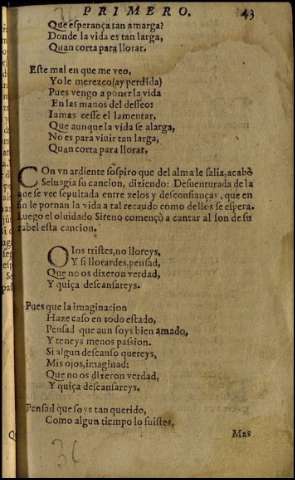 PRIMERO. 43
Que esperança tan amarga?
Donde la vida es tan larga,
Quan corta para llorar.
Este mal en que me veo,
Yo le merezco (ay perdida)
Pues vengo a poner la vida
En las manos del desseo:
Iamas cesse el lamentar,
Que aunque la vida se alarga,
No es para viuir tan larga,
Quan corta para llorar.
COn vn ardiente sospiro que del alma le salia, acabò
Seluagia su cancion, diziendo: Desuenturada de la
que se vee sepultada entre zelos y desconfianças, que en
fin le pornan la vida a tal recaudo como dellos se espera.
Luego el oluidado Sireno començò a cantar al son de su
rabel esta cancion.
OIos tristes, no lloreys,
Y si lloreardes, pensad,
Que no os dixeron verdad,
Y quiça descansareys.
Pues que la imaginacion
Haze caso en todo estado,
Pensad que aun soys bien amado,
Y teneys menos passion.
Si algun descanso quereys,
Mis ojos, imaginad:
Que no os dixeron verdad,
Y quiça descansareys.
Pensad que soys tan querido,
Como algun tiempo lo fuistes,
Mas
36